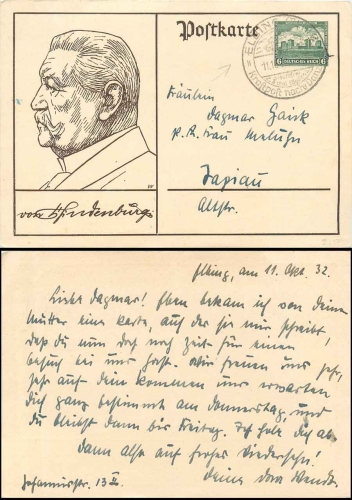 Postkarte
ELBING
6 DEUTSCHES REICH 6
Fräulein
Dagmar Zaick
p. A. Frau
Tapiau
Altstr.
von Hindenburg
Elbing, am 11. Okt. 32.
Liebe Dagmar! Eben bekam ich von Deiner
Mutter eine Karte, auf der sie mir schreibt,
daß Du nun doch noch Zeit für einen
Besuch bei uns hast. Wir freuen uns sehr,
sehr auf Dein Kommen und erwarten
Dich ganz bestimmt am Donnerstag, und
Du bleibst dann bis Freitag. Ich hole Dich ab.
Dann also auf frohes Wiedersehn!
Johannisstr. 13 II. Deine Dora